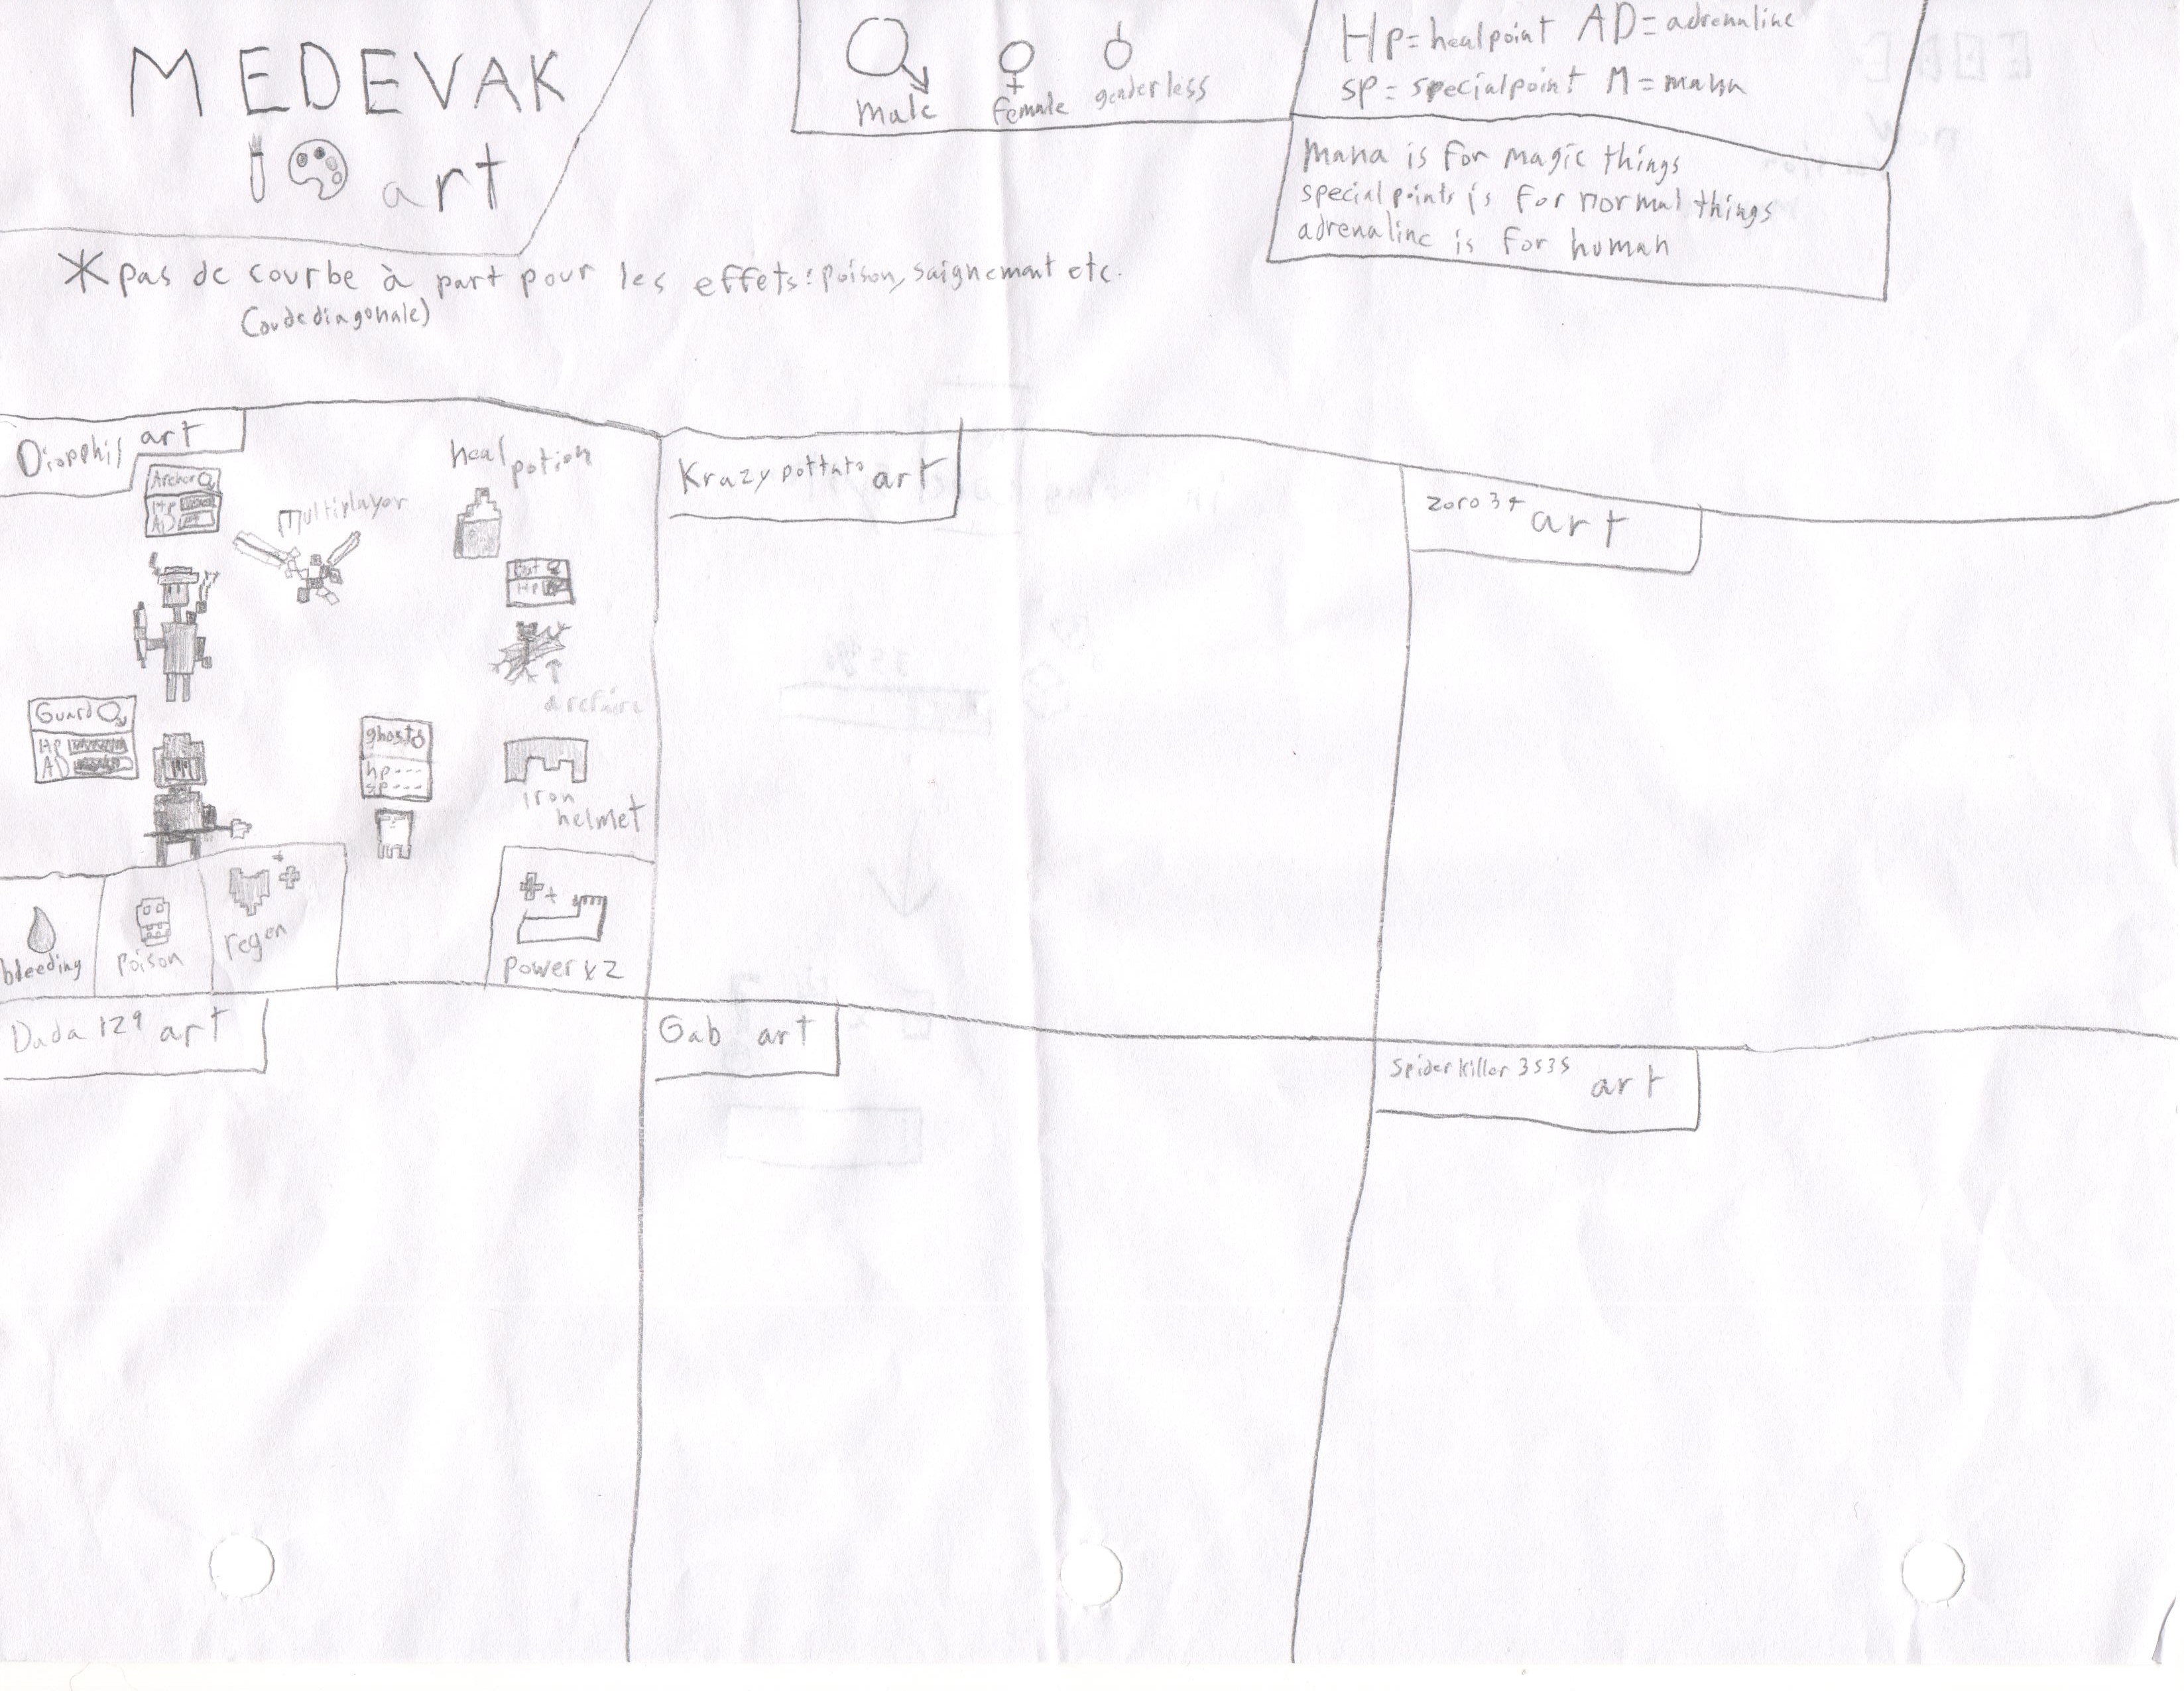 MEDEVAK
art
male
female
genderless
Hp=healpoint AD=adrenaline
sp=specialpoint M=mana
mana is for magic things
specialpoints is for normal things
adrenaline is for human
*pas de courbe à part pour les effets: poison, saignement etc.
(ou de diagonale)
Diopphil art
Archer
HP
AD
Multiplayer
heal potion
HP
à refaire
Guard
HP
AD
ghost
hp---
sp---
iron
helmet
bleeding
poison
regen
power x2
Krazypottato art
zoro34 art
Dada129 art
Gab art
Spiderkiller3535 art